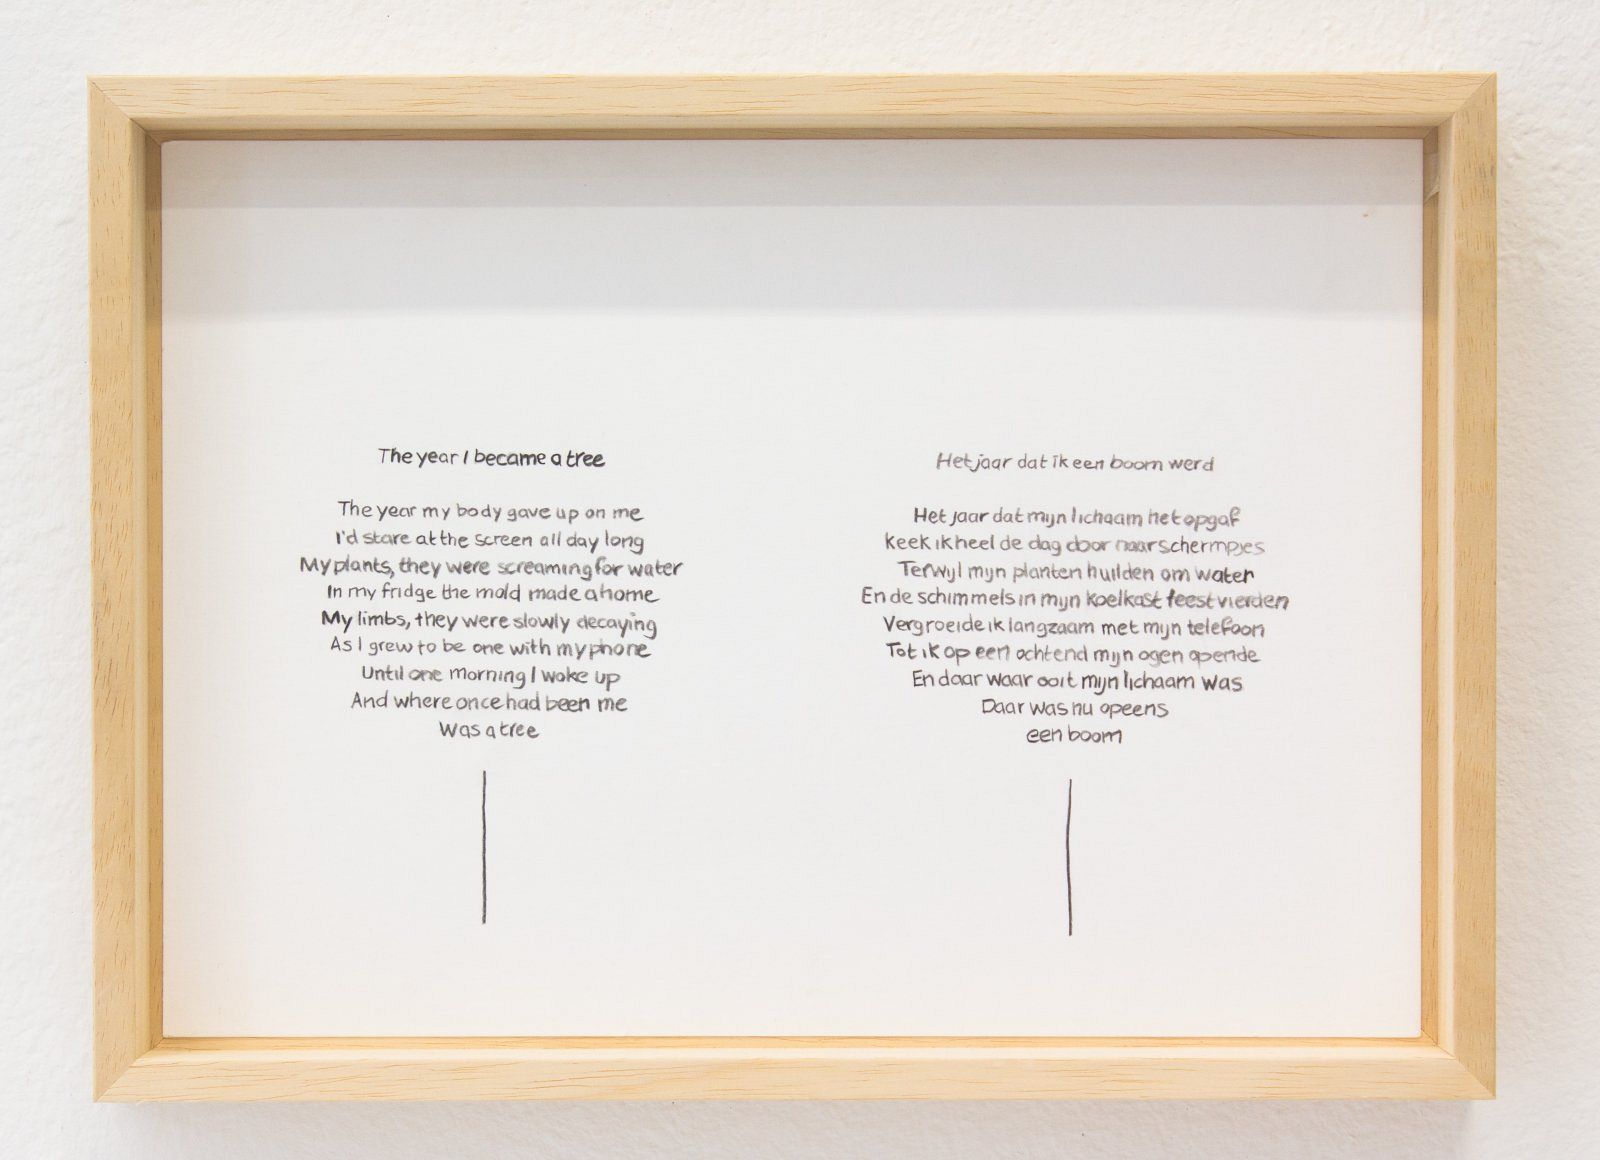 The year I became a tree
The year my body gave up on me
I'd stare at the screen all day long
My plants, they were screaming for water
In my fridge the mold made a home
My limbs, they were slowly decaying
As I grew to be one with my phone
Until one morning I woke up
And where once had been me
Was a tree
Het jaar dat ik een boom werd
Het jaar dat mijn lichaam het opgaf
Keek ik heel de dag door naar schermpjes
Terwijl mijn planten huilden om water
En de schimmels in mijn koelkast feest vierden
Vergroeide ik langzaam met mijn telefoon
Tot ik op een ochtend mijn ogen opende
En daar waar ooit mijn lichaam was
Daar was nu opeens
een boom